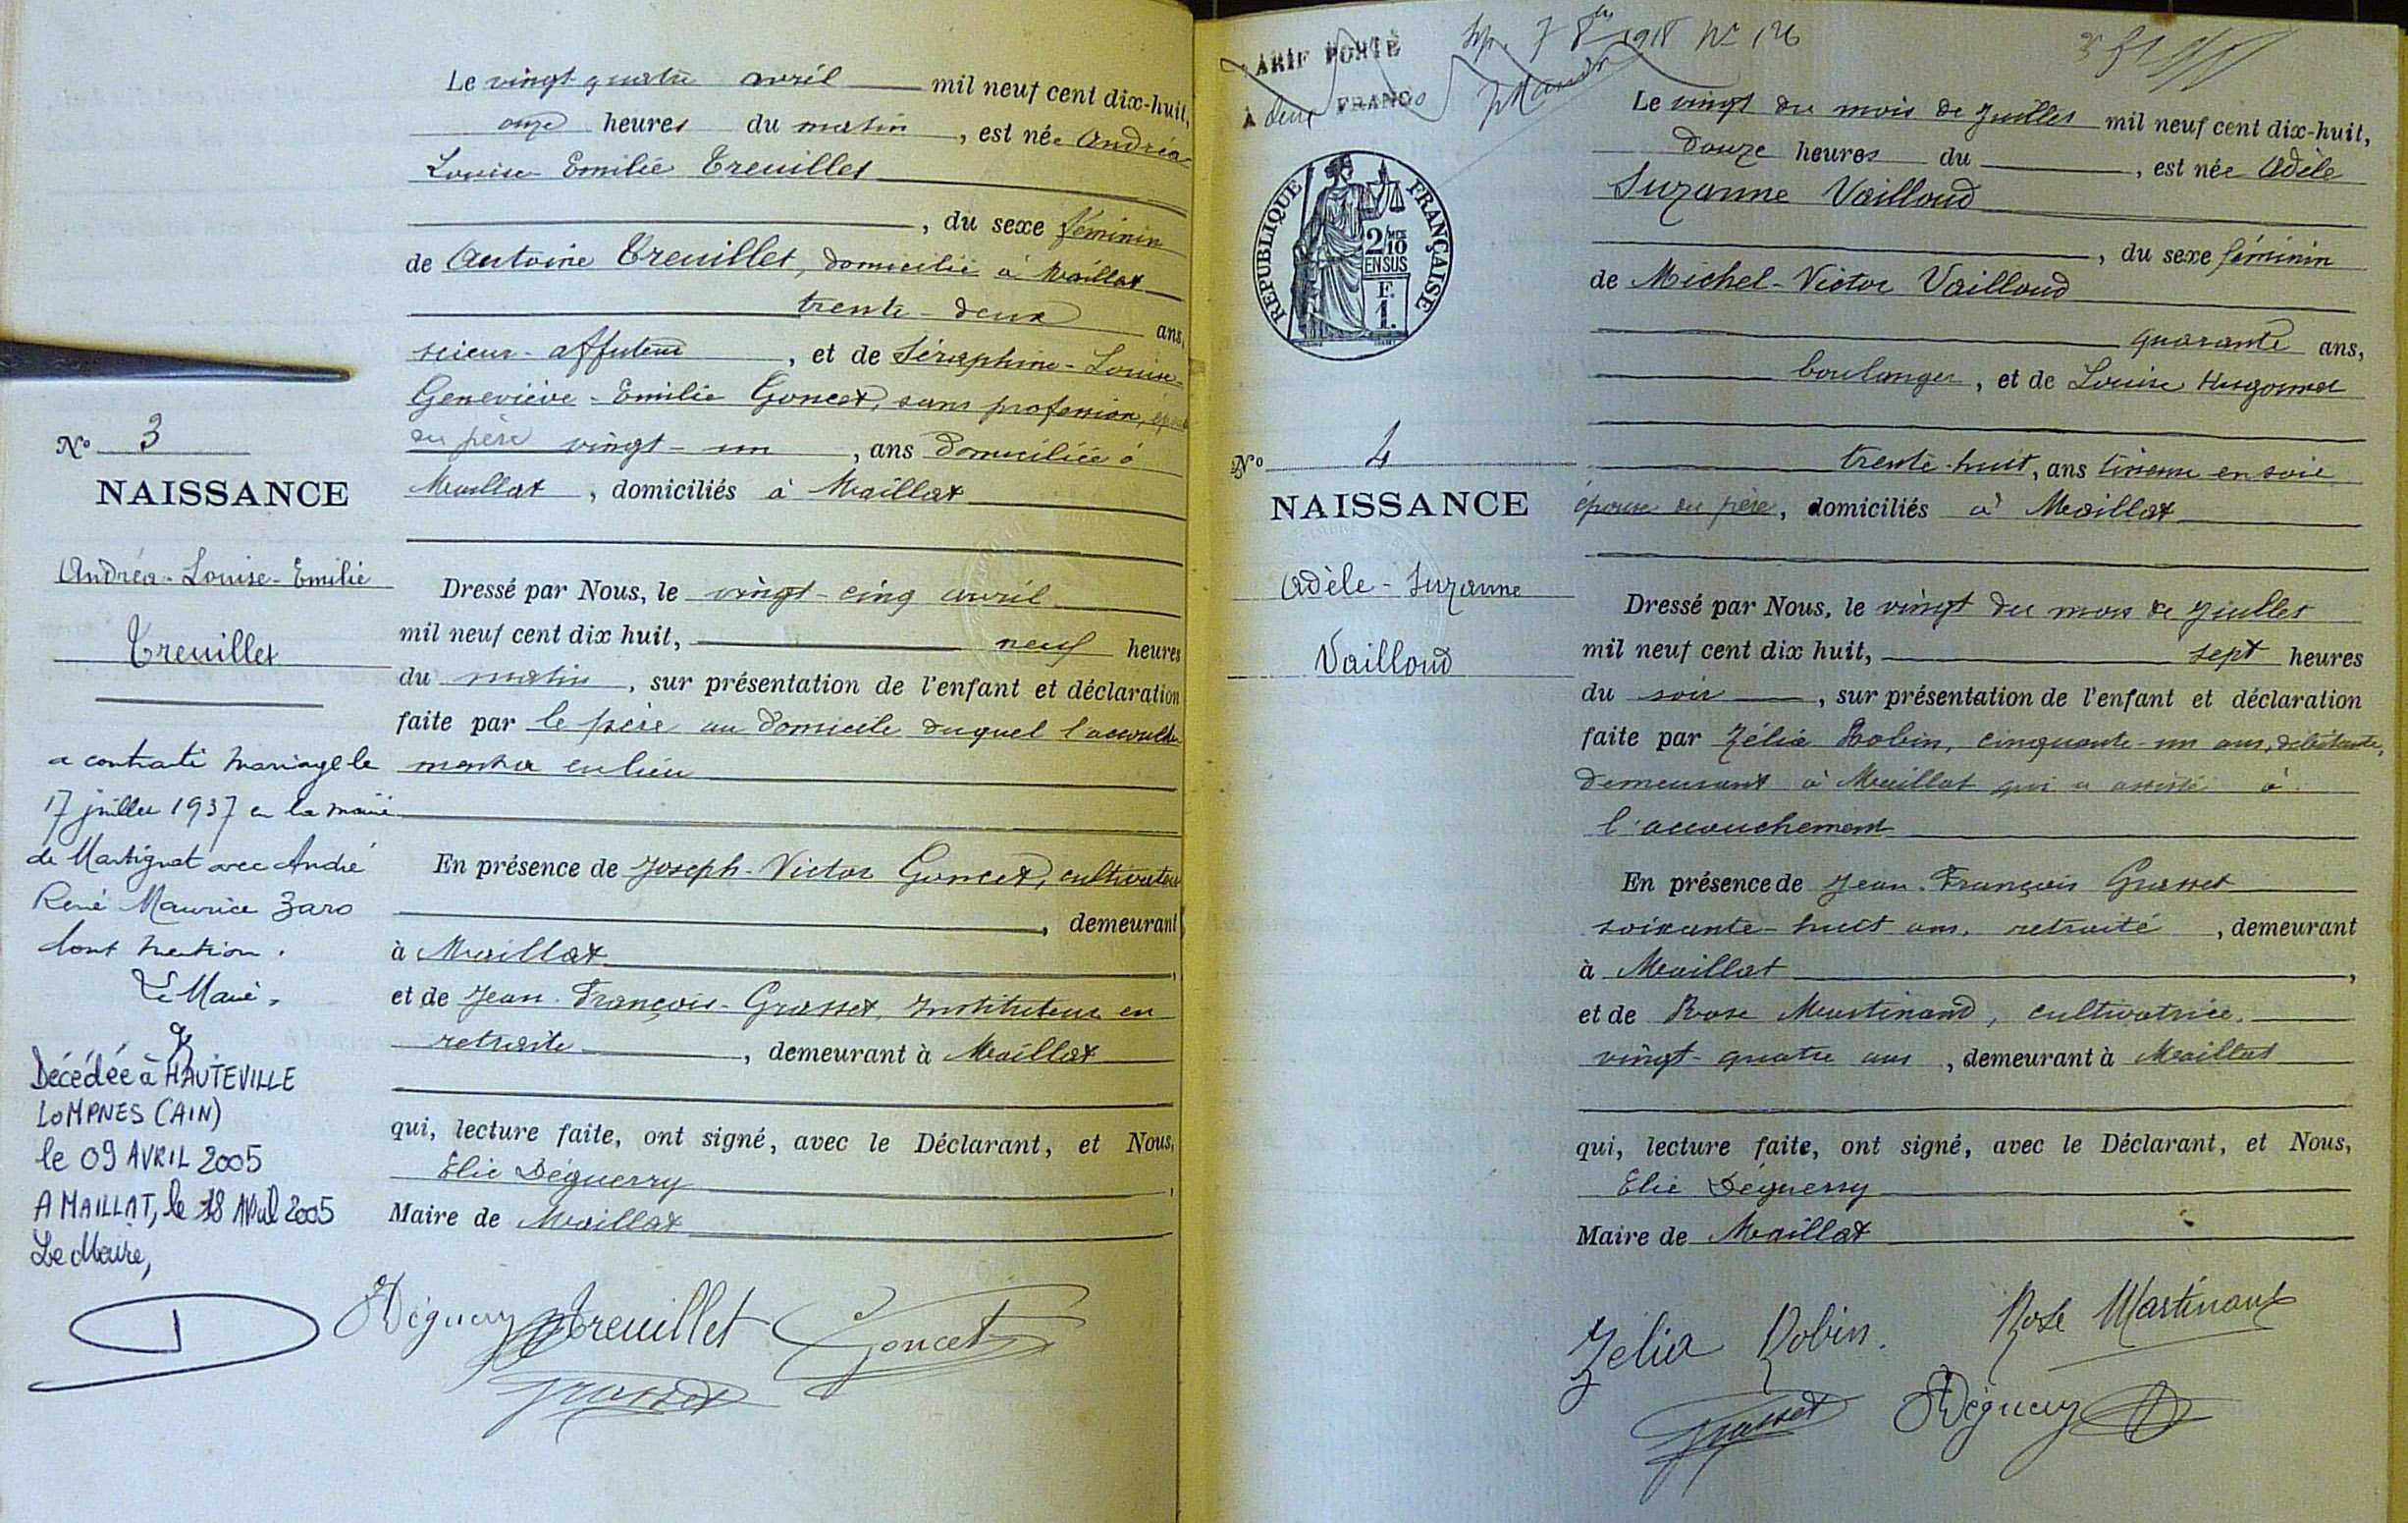 Le vingt-quatre avril mil neuf cent dix-huit,
onze heures du matin, est née Andréa-
Louise Emilie Treuillet
, du sexe féminin
de Antoine Treuillet, domicilié à Maillat
trente-deux ans,
scieur-affuteur, et de Séraphine-Louise-
Geneviève-Emilie Goncet, sans profession, épouse
du père vingt-un, ans domiciliée à
Maillat, domiciliés à Maillat
Nº 3
NAISSANCE
Andréa-Louise-Emilie
Treuillet
Dressé par Nous, le vingt-cinq avril
mil neuf cent dix huit, neuf heures
du matin, sur présentation de l'enfant et déclaration
faite par le père au domicile duquel l'accouche
ment a eu lieu
En présence de Joseph-Victor Goncet, cultivateur
, demeurant
à Maillat,
et de Jean-François-Grasset, Instituteur en
retraite, demeurant à Maillat
qui, lecture faite, ont signé, avec le Déclarant, et Nous,
Elie Déguerry,
Maire de Maillat
a contracté mariage le
17 juillet 1937 en la mairie
de Martignat avec André
René Maurice Zaro
dont mention.
Le Maire,
Décédée à HAUTEVILLE
LOMPNES (AIN)
le 09 AVRIL 2005
A MAILLAT, le 18 Avril 2005
Le Maire,
Déguerry Treuillet Goncet
Grasset
TARIF PORTÉ
À deux FRANCS
7 1918 Nº 126
RÉPUBLIQUE FRANÇAISE
2/10
MES
EN SUS
F.
1.
Le vingt du mois de Juillet mil neuf cent dix-huit,
douze heures du, est née Adèle
Suzanne Vailloud
, du sexe féminin
de Michel-Victor Vailloud
quarante ans,
boulanger, et de Louise Hugonnet
trente-huit, ans tisseuse en soie
épouse du père, domiciliés à Maillat
Nº 4
NAISSANCE
Adèle-Suzanne
Vailloud
Dressé par Nous, le vingt du mois de Juillet
mil neuf cent dix huit, sept heures
du soir, sur présentation de l'enfant et déclaration
faite par Zélia Robin, cinquante-un ans, débitante,
demeurant à Maillat qui a assisté à
l'accouchement
En présence de Jean-François Grasset
soixante-huit ans, retraité, demeurant
à Maillat,
et de Rose Martinand, cultivatrice,
vingt-quatre ans, demeurant à Maillat
qui, lecture faite, ont signé, avec le Déclarant, et Nous,
Elie Déguerry
Maire de Maillat
Zélia Robin. Rose Martinand
Grasset Déguerry